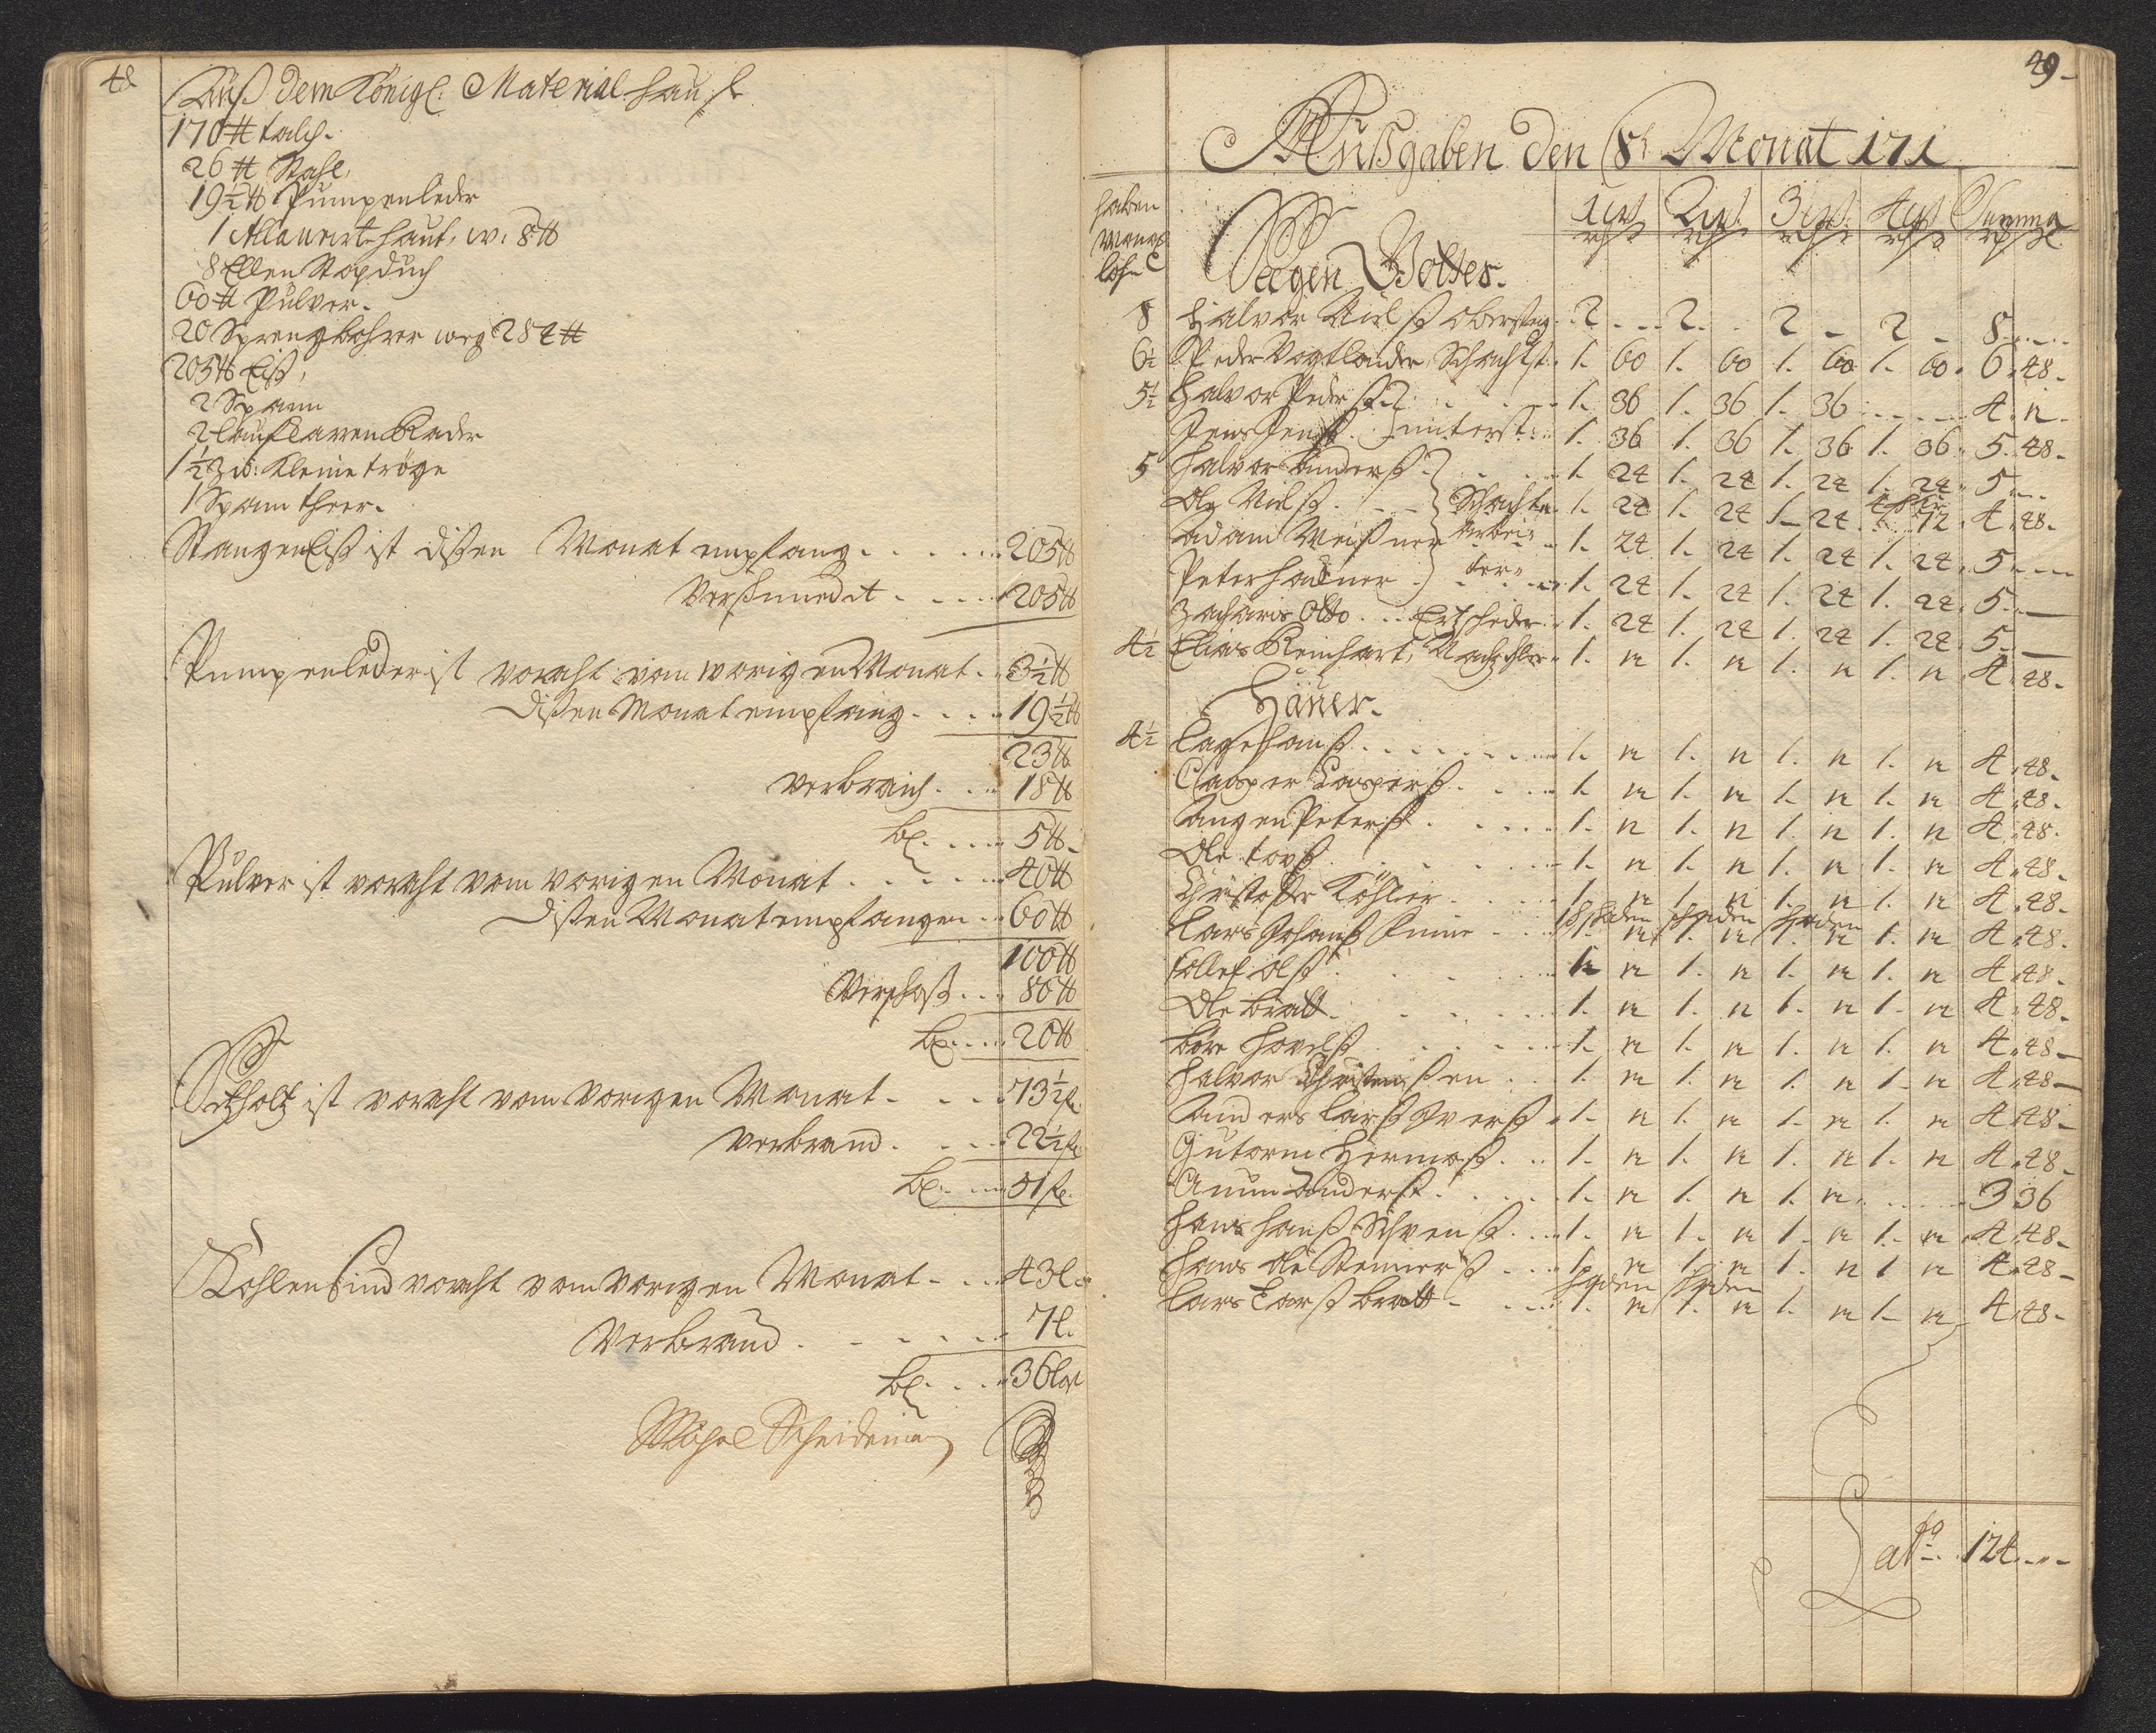 48
Auß dem Königl: Material hauße
170 ℔ talch.
26 ℔ Stahl,
19½ ℔ Pumpenleder
1 haut, w: 8 ℔
8 Ellen Stopduch
60 ℔ Pulver.
20 Sprengbohrer weg 284 ℔
205 ℔ Eiß,
2 Spann
2 laufkarren Rader
1½ Zw: Kleine tröge
1 Spann theer.
Stangen Eiß ist dißen Monat empfang. . . . . . 205 ℔
Verschmiedet . . . . 205 ℔
Pumpenleder ist voraht vom vorigen Monat . . 3½ ℔
dißen Monat empfang . . . . 19½ ℔
23 ℔
verbrauch . . . 18 ℔
bl. . . . . 5 ℔
Pulver ist voraht vom vorigen Monat . . . . . 40 ℔
dißen Monat empfangen . . 60 ℔
100 ℔
Verschoß . . . 80 ℔
bl. . . . . 20 ℔
Setzholtz ist voraht vom vorigen Monat . . . . 73½ f.
verbrand . . . . 22½ f.
bl. . . . 51 f.
Kohlen Sind voraht vom vorigen Monat . . . 43 l.
Verbrand . . . . . . 7 l.
bl. . . . 36 last
Michel Scheideman
49
Außgaben den 8t Monat 171
haben
Monatl
lohn
Seegen Gottes.
1 W 2 W. 3 W. 4 W Summa
8 Halvor Nielß Obersteig. . 2 . . . 2 . . 2 – 2 – 8 . . . .
6½ Peder Vogtlander Schachtst. . 1. 60 1. 60 1. 60 1. 60. 6. 48.
5½ Halvor Pederß . . . . . 1. 36 1. 36 1. 36 . . . . . 4. 12.
Jens Jenß . . unterst. . . 1. 36 1. 36 1. 36 1. 36. 5. 48.
5 Halvor Anderß . . . . . 1. 24 1. 24 1. 24 1. 24. 5 . . .
Ole Nielß . . . . Schacht 1. 24 1. 24 1. 24 . . 72. 4. 48.
Adam Meißner Arbei= 1. 24 1. 24 1. 24 1. 24. 5 . . .
Peter Hackner . . ter= . . 1. 24 1. 24 1. 24 1. 24. 5. –
Zacharis Otto . . . Ertzscheder . . 1. 24 1. 24 1. 24 1. 24. 5 –
4½ Elias Reinhart, 1. 12 1. 12 1. 12 1. 12. 4. 48.
Häuer.
4½ Lage Hanß . . . . . . . 1. 12 1. 12 1. 12 1. 12 4. 48.
Casper Casperß . . . . . 1. 12 1. 12 1. 12 1. 12 4. 48.
Peterß . . . . . 1. 12 1. 12 1. 12 1. 12 4. 48.
Ole torß . . . . . . 1. 12 1. 12 1. 12 1. 12 4. 48.
Christoffer Köhler . . . . 1. 12 1. 12 1. 12 1. 12 4. 48.
Lars Johanß . . . 1. 12 1. 12 1. 12 1. 12 4. 48.
tollef Olß . . . . . . 1. 12 1. 12 1. 12 1. 12 4. 48.
Ole Bratt . . . . . . 1. 12 1. 12 1. 12 1. 12 4. 48.
Bore Hovelß . . . . . . 1. 12 1. 12 1. 12 1. 12 4. 48.
Halvor Christenßen . . . 1. 12 1. 12 1. 12 1. 12 4. 48.
Anders Larß Iverß . . 1. 12 1. 12 1. 12 1. 12 4. 48.
Gutorm Hermoß . . . 1. 12 1. 12 1. 12 1. 12 4. 48.
Amun Anderß . . . . . 1. 12 1. 12 1. 12 . . . . 3 36
Hans Hanß . . . 1. 12 1. 12 1. 12 1. 12 4. 48.
Hans Ole . . . 1. 12 1. 12 1. 12 1 12 4. 48.
Lars Larß Bratt . . . . 1. 12 1. 12 1. 12 1. 12 4. 48.
Latg . . 124 . . .